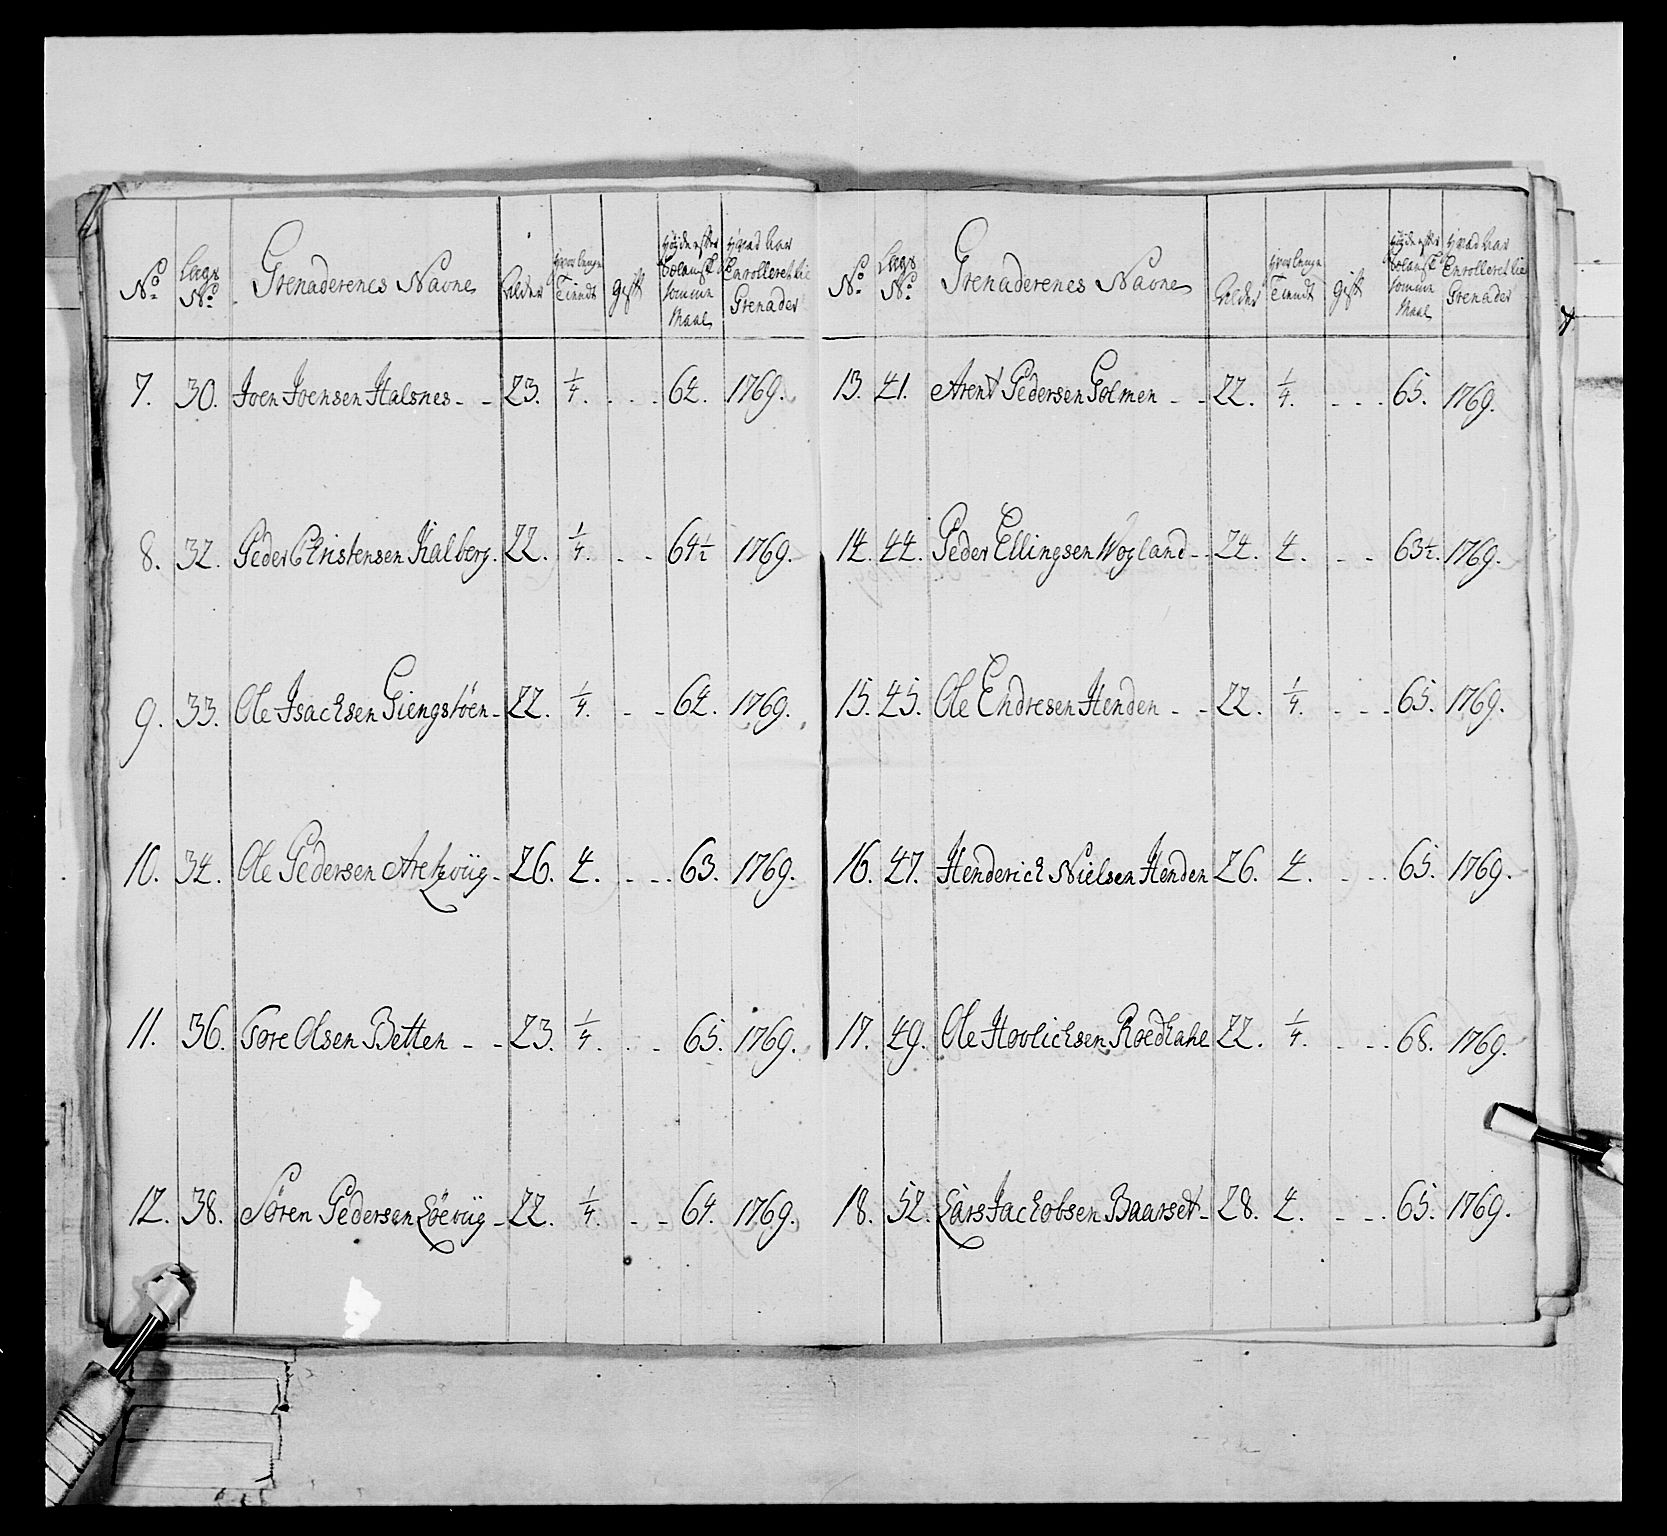 No. Lægs No. Grenaderenes Navne Alder Hvor længe Tiendt Gift Høyde efter somme Maal Hvad Aar Enrolleret til Grenader
7. 30. Joen Joensen Halsnes - - 23. 1/4. - - - 64. 1769.
8. 32. Peder Christensen Kalberg. 22. 1/4. - - 64 1/2 1769.
9. 33. Ole Isachsen Giengstøen - 22. 1/4. - - 64. 1769.
10. 34. Ole Pedersen - 26. 4. - - - 63. 1769.
11. 36. Tore Olsen Betten - - 23. 1/4. - - 65. 1769.
12. 38. Sören Pedersen Löeviig - 22. 1/4. - - 64. 1769.
No. Lægs No. Grenaderenes Navne Alder Hvor længe Tiendt Gift Høyde efter somme Maal Hvad Aar Enrolleret til Grenader
13. 41. Arent Pedersen Golmen - - 22. 1/4. - - - 65. 1769.
14. 44. Peder Ellingsen Wogland - - 24. 4. - - 63 1/2. 1769.
15. 45. Ole Endresen Henden - - 22. 1/4. - - - 65. 1769.
16. 47. Henderich Nielsen Henden 26. 4. - - - 65. 1769.
17. 49. Ole Hovlichsen 22. 1/4. - - - 68. 1769.
18. 52. Lars Jachobsen Baarset - 28. 4. - - - 65. 1769.